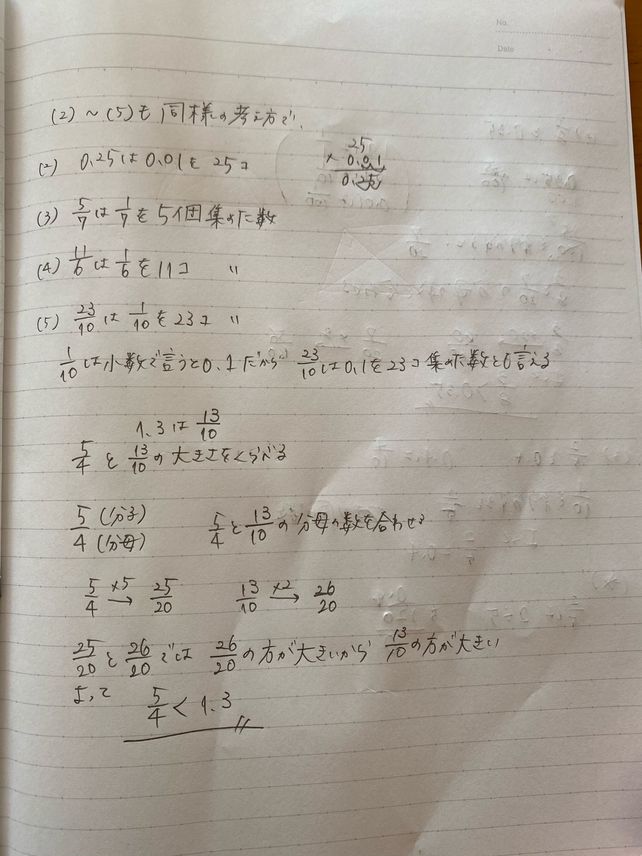 No.
Date
(2)～(5)も同様の考え方で、
(2) 0.25は0.01を25コ
25
× 0.01
0.25
(3) 5/7は1/7を5個集めた数
(4) 11/6は1/6を11コ 〃
(5) 23/10は1/10を23コ 〃
1/10は小数で言うと0.1だから 23/10は0.1を23コ集めた数とも言える
1.3は13/10
5/4と13/10の大きさをくらべる
5(分子)/4(分母) 5/4と13/10の分母の数を合わせる
5/4 ×5→ 25/20 13/10 ×2→ 26/20
25/20と26/20では 26/20の方が大きいから 13/10の方が大きい
よって
5/4 < 1.3